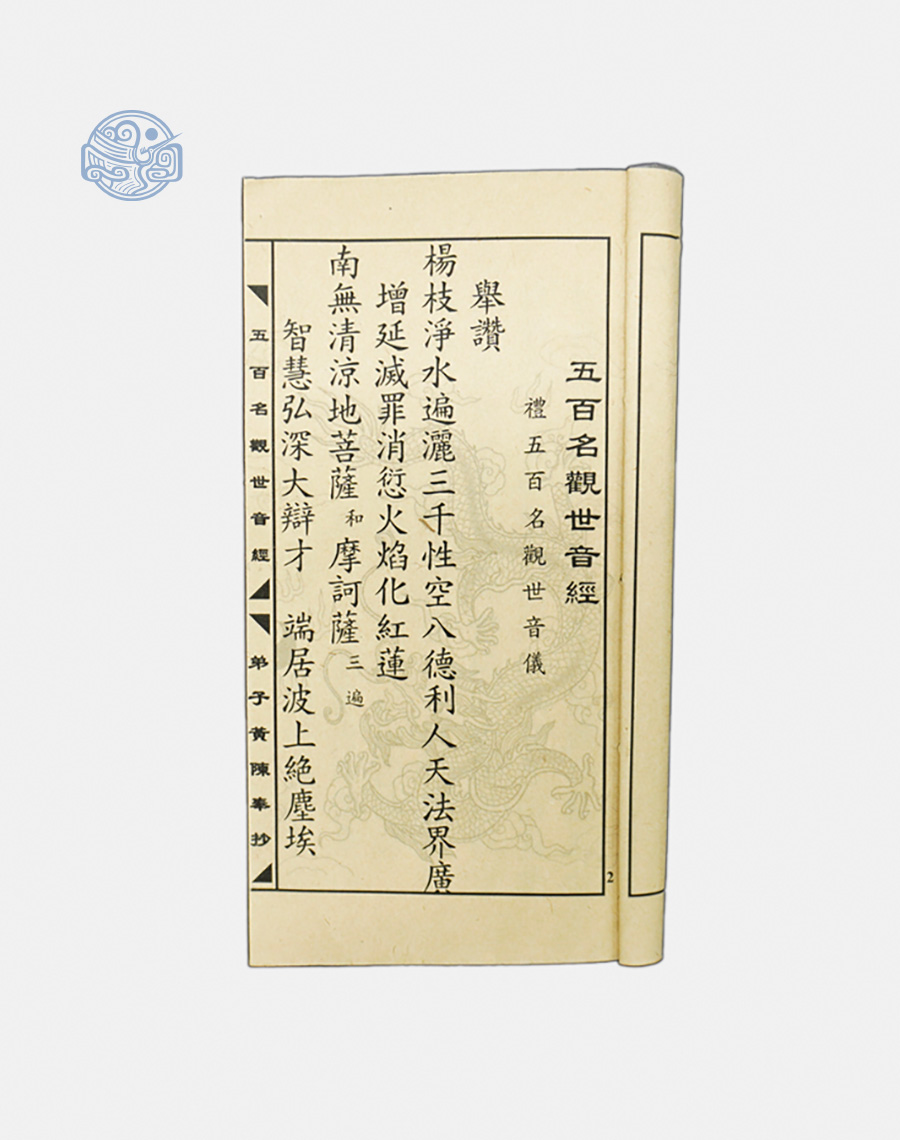 五百名觀世音經
禮五百名觀世音儀
舉讚
楊枝淨水遍灑三千性空八德利人天法界廣
增延滅罪消愆火焰化紅蓮
南無清涼地菩薩和摩訶薩三遍
智慧弘深大辯才 端居波上絕塵埃
五百名觀世音經
弟子黃陳奉抄
2